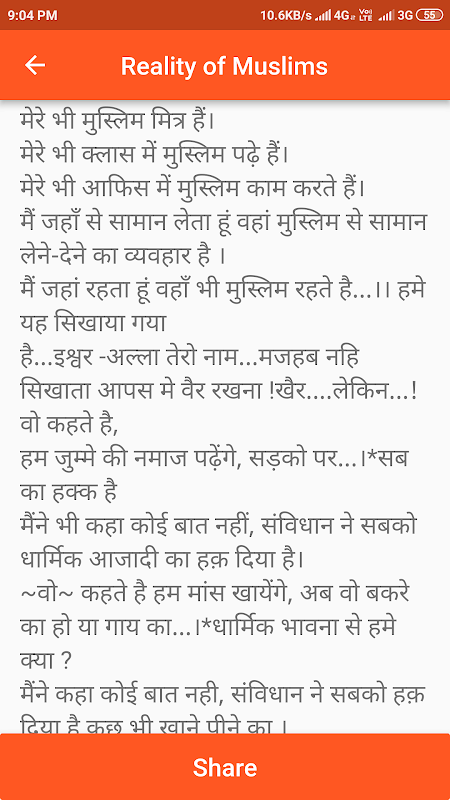 9:04 PM 10.6KB/s 4G VoLTE 3G 55
Reality of Muslims
मेरे भी मुस्लिम मित्र हैं।
मेरे भी क्लास में मुस्लिम पढ़े हैं।
मेरे भी आफिस में मुस्लिम काम करते हैं।
मैं जहाँ से सामान लेता हूं वहां मुस्लिम से सामान
लेने-देने का व्यवहार है ।
मैं जहां रहता हूं वहाँ भी मुस्लिम रहते है...।। हमे
यह सिखाया गया
है...इश्वर -अल्ला तेरो नाम...मजहब नहि
सिखाता आपस मे वैर रखना !खैर....लेकिन...!
वो कहते है,
हम जुम्मे की नमाज पढ़ेंगे, सड़को पर...।*सब
का हक्क है
मैंने भी कहा कोई बात नहीं, संविधान ने सबको
धार्मिक आजादी का हक़ दिया है।
~वो~ कहते है हम मांस खायेंगे, अब वो बकरे
का हो या गाय का...।*धार्मिक भावना से हमे
क्या ?
मैंने कहा कोई बात नही, संविधान ने सबको हक़
दिया है कुछ भी खाने पीने का ।
Share